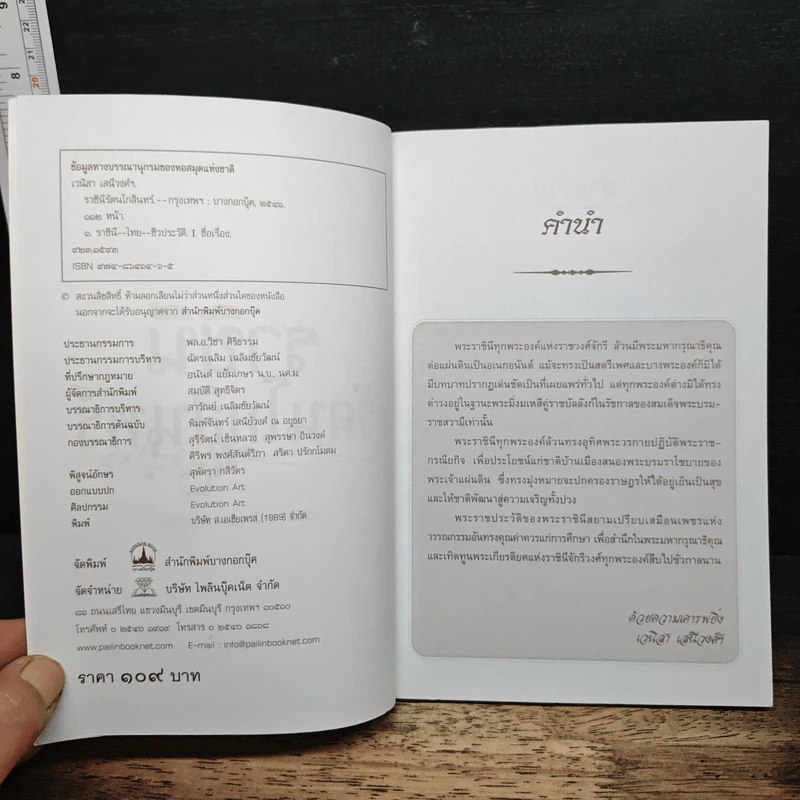 ข้อมูลทางบรรณานุกรมของหอสมุดแห่งชาติ
เวนิสา เสนีวงศ์ฯ.
ราชินีรัตนโกสินทร์.--กรุงเทพฯ : บางกอกบุ๊ค, ๒๕๔๑.
๑๑๒ หน้า.
๑. ราชินี--ไทย--ชีวประวัติ. I. ชื่อเรื่อง.
๙๒๓.๑๕๙๓
ISBN ๙๗๔-๘๖๔๑๔-๖-๕
© สงวนลิขสิทธิ์ ห้ามลอกเลียนไม่ว่าส่วนหนึ่งส่วนใดของหนังสือ
นอกจากจะได้รับอนุญาตจาก สำนักพิมพ์บางกอกบุ๊ค
ประธานกรรมการ พล.อ.วิชา ศิริธรรม
ประธานกรรมการบริหาร ฉัตรเฉลิม เฉลิมชัยวัฒน์
ที่ปรึกษากฎหมาย อนันต์ แย้มเกษร น.บ., นศ.ม.
ผู้จัดการสำนักพิมพ์ สมบัติ สุทธิจิตร
บรรณาธิการบริหาร ลาวัณย์ เฉลิมชัยวัฒน์
บรรณาธิการต้นฉบับ พิมพ์จันทร์ เสนีย์วงศ์ ณ อยุธยา
กองบรรณาธิการ สุรีรัตน์ เซ็นหลวง สุพรรษา อินวงค์
ศิริพร พงศ์สันต์วิภา สริตา ปรักกโมดม
พิสูจน์อักษร สุพัตรา กสิวัตร
ออกแบบปก Evolution Art
ศิลปกรรม Evolution Art
พิมพ์ บริษัท ส.เอเซียเพรส (1989) จำกัด
จัดพิมพ์ สำนักพิมพ์บางกอกบุ๊ค
จัดจำหน่าย บริษัท ไพลินบุ๊คเน็ต จำกัด
๘๑ ถนนเสรีไทย แขวงมีนบุรี เขตมีนบุรี กรุงเทพฯ ๑๐๕๑๐
โทรศัพท์ ๐ ๒๕๔๑ ๑๙๑๙ โทรสาร ๐ ๒๕๔๑ ๑๘๑๘
www.pailinbooknet.com E-mail : info@pailinbooknet.com
ราคา ๑๐๙ บาท
คำนำ
พระราชินีทุกพระองค์แห่งราชวงศ์จักรี ล้วนมีพระมหากรุณาธิคุณ
ต่อแผ่นดินเป็นอเนกอนันต์ แม้จะทรงเป็นสตรีเพศและบางพระองค์ก็มิได้
มีบทบาทปรากฏเด่นชัดเป็นที่เผยแพร่ทั่วไป แต่ทุกพระองค์ต่างมิได้ทรง
ดำรงอยู่ในฐานะพระมิ่งมเหสีคู่ราชบัลลังก์ในรัชกาลของสมเด็จพระบรม-
ราชสวามีเท่านั้น
พระราชินีทุกพระองค์ล้วนทรงอุทิศพระวรกายปฏิบัติพระราช-
กรณียกิจ เพื่อประโยชน์แก่ชาติบ้านเมืองสนองพระบรมราโชบายของ
พระเจ้าแผ่นดิน ซึ่งทรงมุ่งหมายจะปกครองราษฎรให้ได้อยู่เย็นเป็นสุข
และให้ชาติพัฒนาสู่ความเจริญทั้งปวง
พระราชประวัติของพระราชินีสยามเปรียบเสมือนเพชรแห่ง
วรรณกรรมอันทรงคุณค่าควรแก่การศึกษา เพื่อสำนึกในพระมหากรุณาธิคุณ
และเทิดทูนพระเกียรติยศแห่งราชินีจักรีวงศ์ทุกพระองค์สืบไปชั่วกาลนาน
ด้วยความเคารพยิ่ง
เวนิสา เสนีวงศ์ฯ